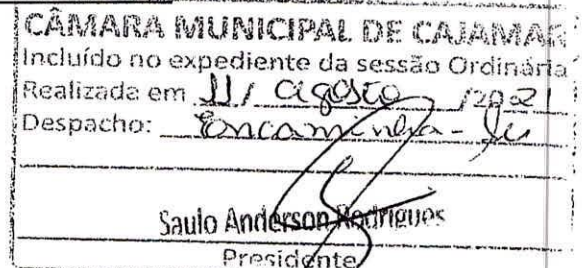 CÂMARA MUNICIPAL DE CAJAMAR
Incluído no expediente da sessão Ordinária
Realizada em 11/ agosto /202
Despacho: Encaminha-se
Saulo Anderson Rodrigues
Presidente